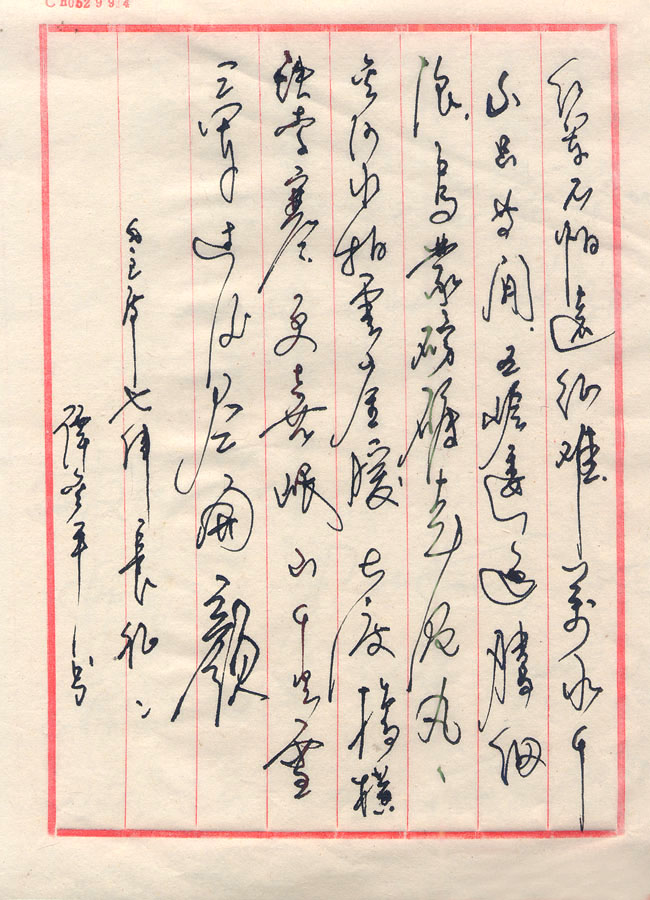 红军不怕遠征难 萬水千
山只等闲 五岭逶迤腾细
浪 乌蒙磅礴走泥丸
金沙水拍雲崖暖 大渡橋横
铁索寒 更喜岷山千里雪
三军过后尽开颜
毛主席七律长征